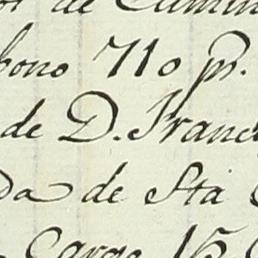 de Camin
bono 710 pr.
de D. Franc
da de Sta
Cargo 15